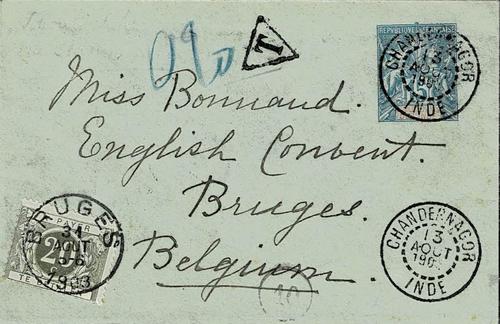 T
RÉPUBLIQUE FRANÇAISE
CHANDERNAGOR
13
AOUT
INDE
Miss Bonnaud.
English Convent.
Bruges.
Belgium.
BRUGES
31
AOUT
1903
A PAYER
TE
CHANDERNAGOR
13
AOUT
INDE